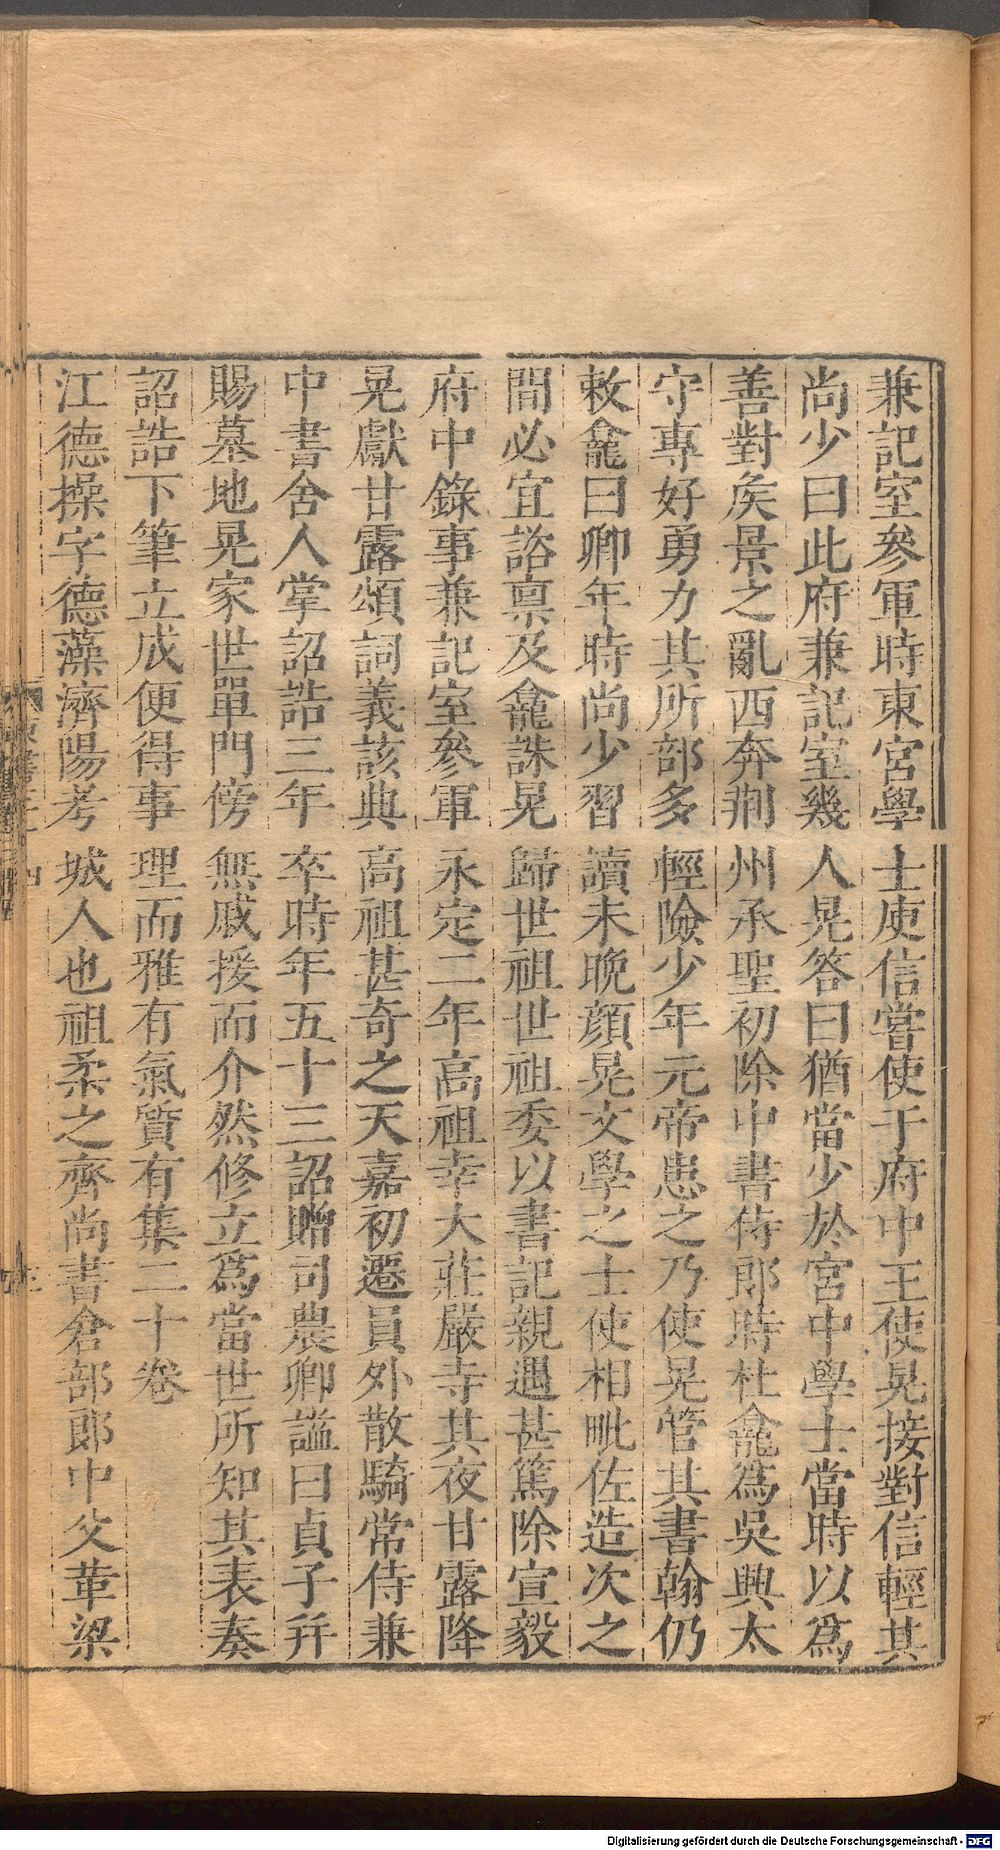 兼記室參軍時東宮學士庾信嘗使于府中王使晃接對信輕其
尚少曰此府兼記室幾人晃答曰猶當少於宮中學士當時以爲
善對矦景之亂西奔荆州承聖初除中書侍郎時杜龕爲吳興太
守專好勇力其所部多輕險少年元帝患之乃使晃管其書翰仍
敕龕曰卿年時尚少習讀未晚顔晃文學之士使相毗佐造次之
間必宜諮禀及龕誅晃歸世祖世祖委以書記親遇甚篤除宣毅
府中錄事兼記室參軍永定二年高祖幸大莊嚴寺其夜甘露降
晃獻甘露頌詞義該典高祖甚奇之天嘉初遷員外散騎常侍兼
中書舍人掌詔誥三年卒時年五十三詔贈司農卿謚曰貞子幷
賜墓地晃家世單門傍無戚援而介然修立爲當世所知其表奏
詔誥下筆立成便得事理而雅有氣質有集二十卷
江德操字德藻濟陽考城人也祖柔之齊尚書倉部郎中父革梁
Digitalisierung gefördert durch die Deutsche Forschungsgemeinschaft - DFG